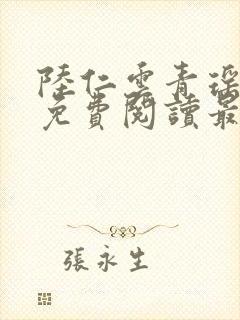 陸仁雲青瑶
免費閱讀最
張永生